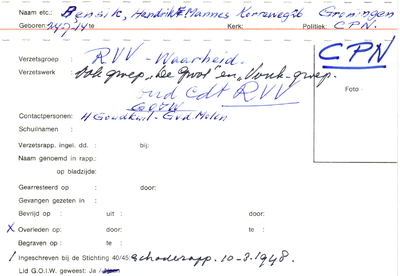 Naam etc.: Bensik, Hendrik Mannes Korreweg Groningen
Geboren: 24-7-14 te Kerk: Politiek: CPN.
CPN
Verzetsgroep : RVV - Waarheid.
Verzetswerk : Ook groep „De Groot" en „Vonk-groep.
ond Cdt RVV
Foto
Contactpersonen: H Goudkuil - G.v.d. Molen
Schuilnamen :
Verzetsrapp. ingel. dd. : bij:
Naam genoemd in rapp.:
op bladzijde:
Gearresteerd op : door:
Gevangen gezeten in :
Bevrijd op : uit : door:
X Overleden op: door: te :
Begraven op : te :
/ Ingeschreven bij de Stichting 40/45: schaderapp. 10-8-1948.
Lid G.O.I.W. geweest: Ja / Neen